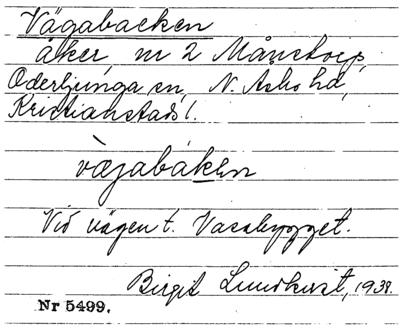 Vägabacken
åker, nr 2 Månstorp,
Oderljunga sn, N. Asbo hd,
Kristianstads l.
vægabáken
Vid vägen t. Vasabygget.
Birgit Lundkvist, 1938.
Nr 5499.